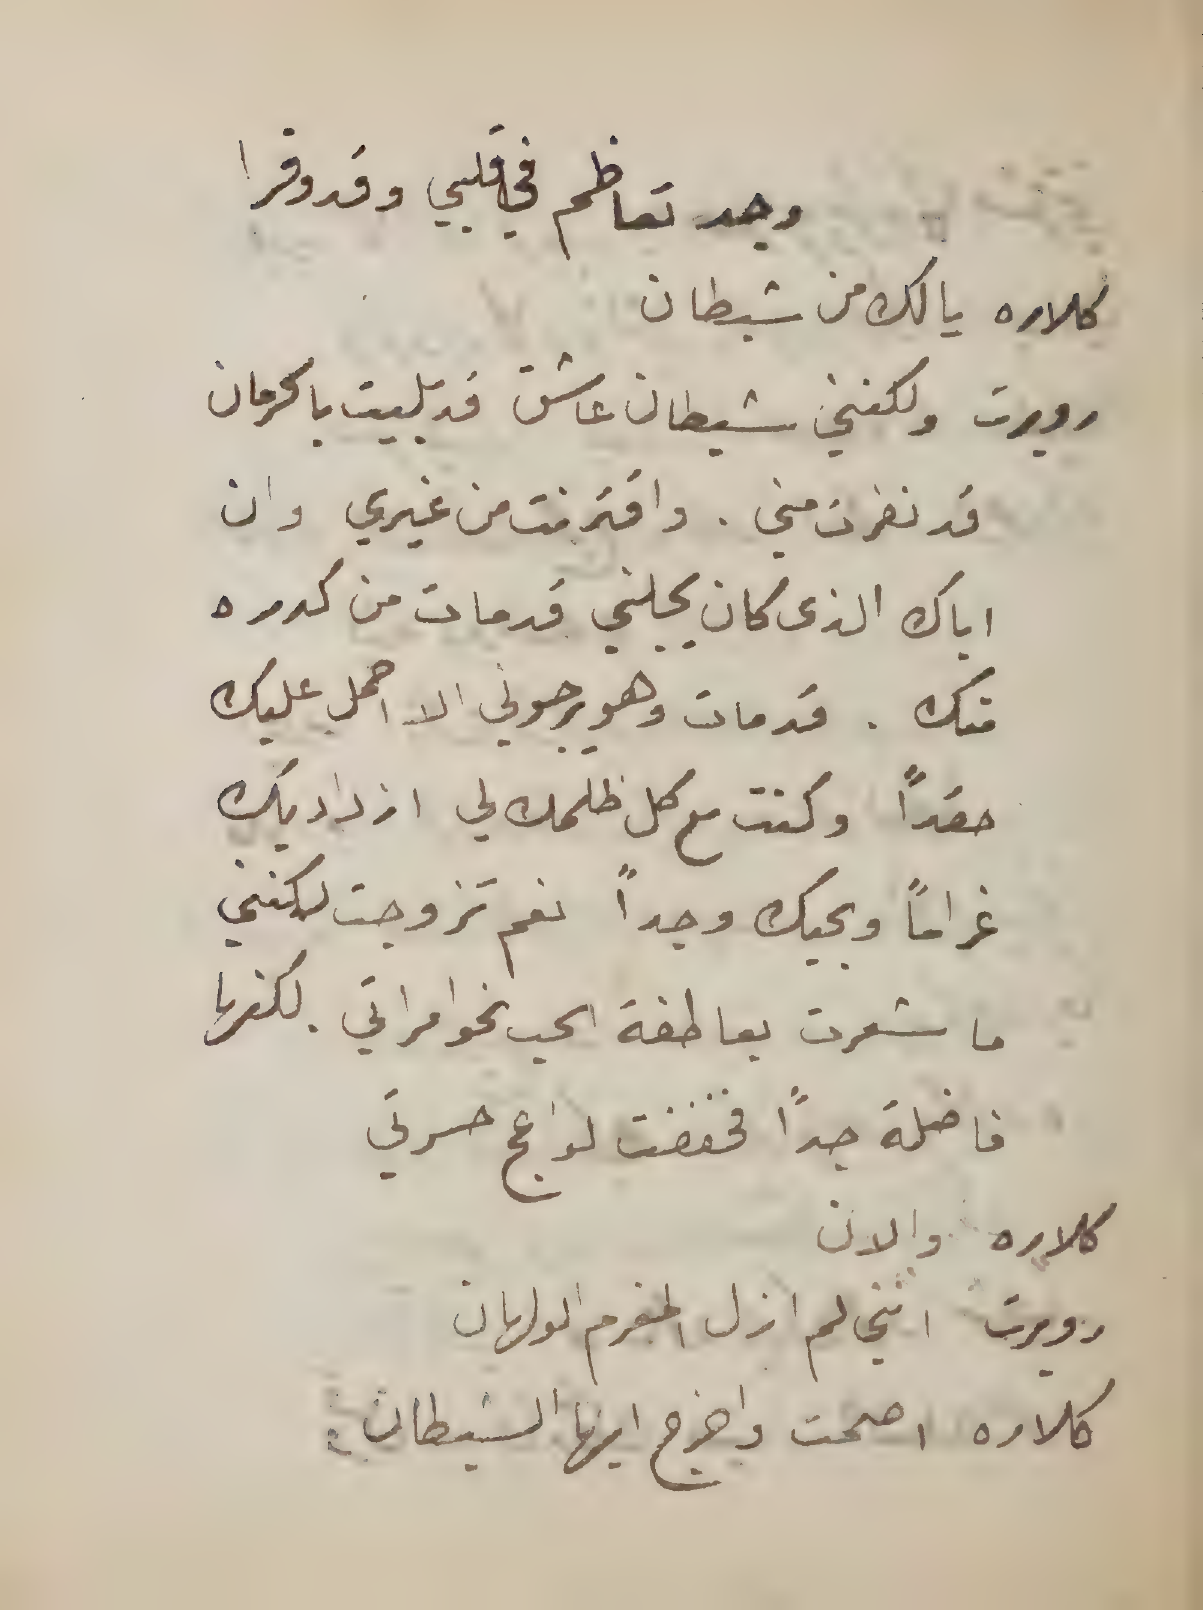 وجد تعاظم في قلبي وقد وقرا
كلاره يالك من شيطان
روبرت ولكنني شيطان عاشق قد بليت بالحرمان
قد نفرت مني . واقترنت من غيري وان
اباك الذى كان يجلني قد مات من كدره
منك . قد مات وهو يرجوني الا احمل عليك
حقداً وكنت مع كل ظلمك لي ازداد بك
غراماً وبحبك وجداً نعم تزوجت لكنني
ما شعرت بعاطفة الحب نحو امراتي . لكنها
فاضلة جداً فخففت لواعج حسرتي
كلاره والان
روبرت انني لم ازل المغرم الولهان
كلاره اصمت واخرج ايها الشيطان :